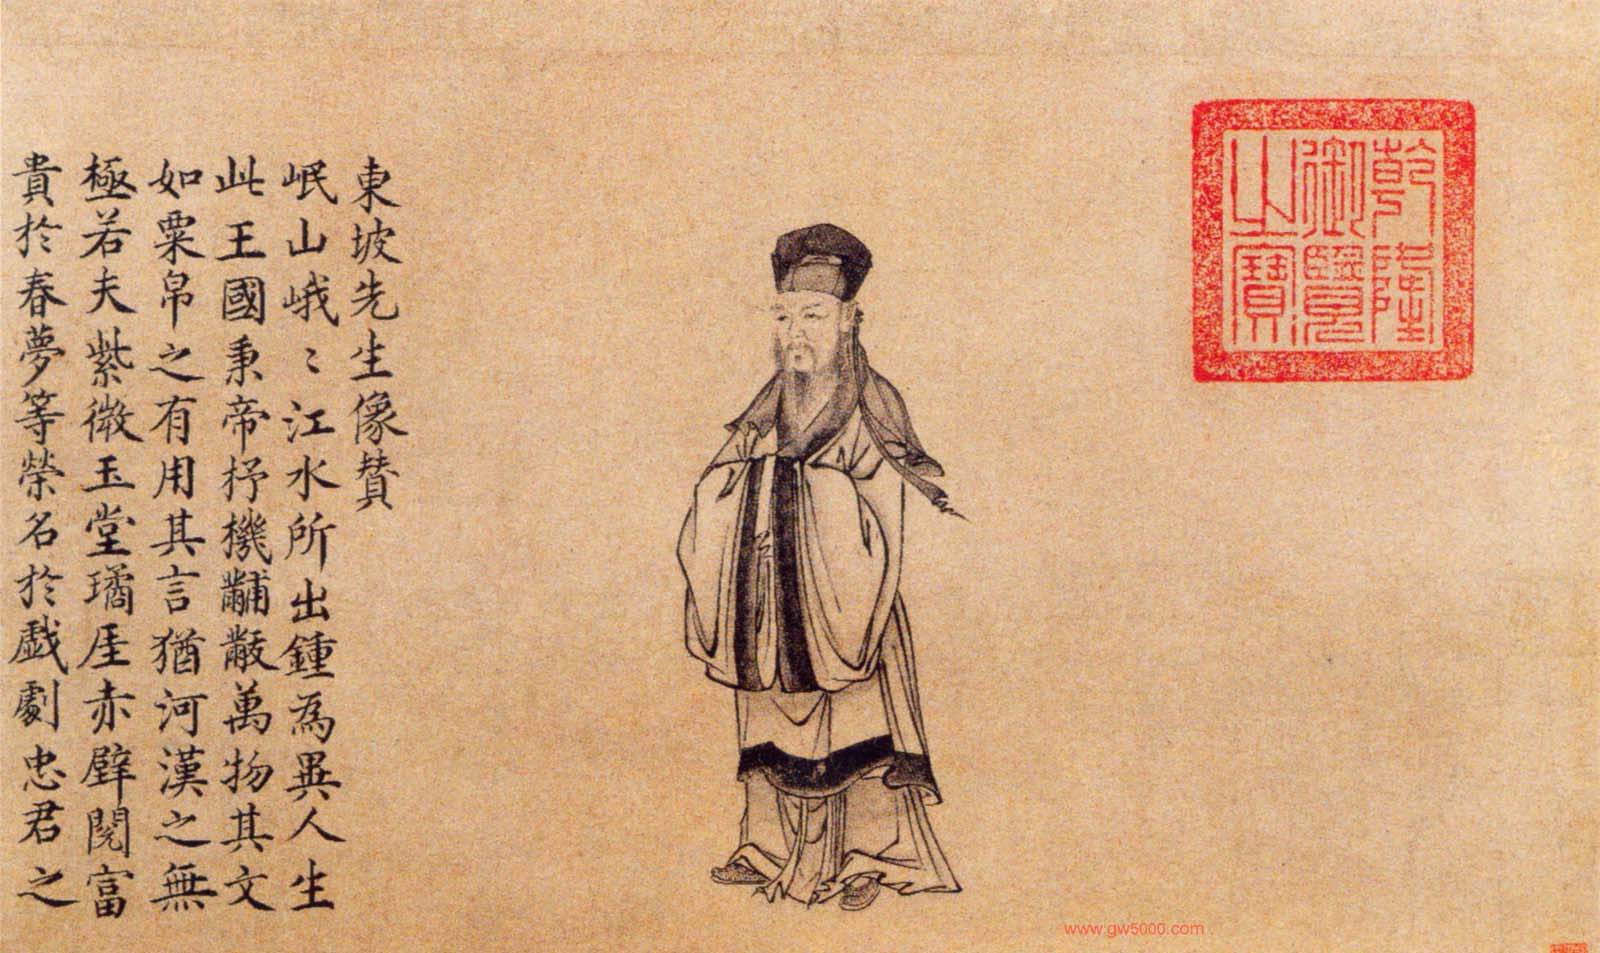 乾隆
御覽
之寶
東坡先生像贊
岷山峨〻江水所出鍾為異人生
此王國秉帝杼機黼黻萬物其文
如粟帛之有用其言猶河漢之無
極若夫紫微玉堂璚厓赤壁閱富
貴於春夢等榮名於戲劇忠君之
www.gw5000.com